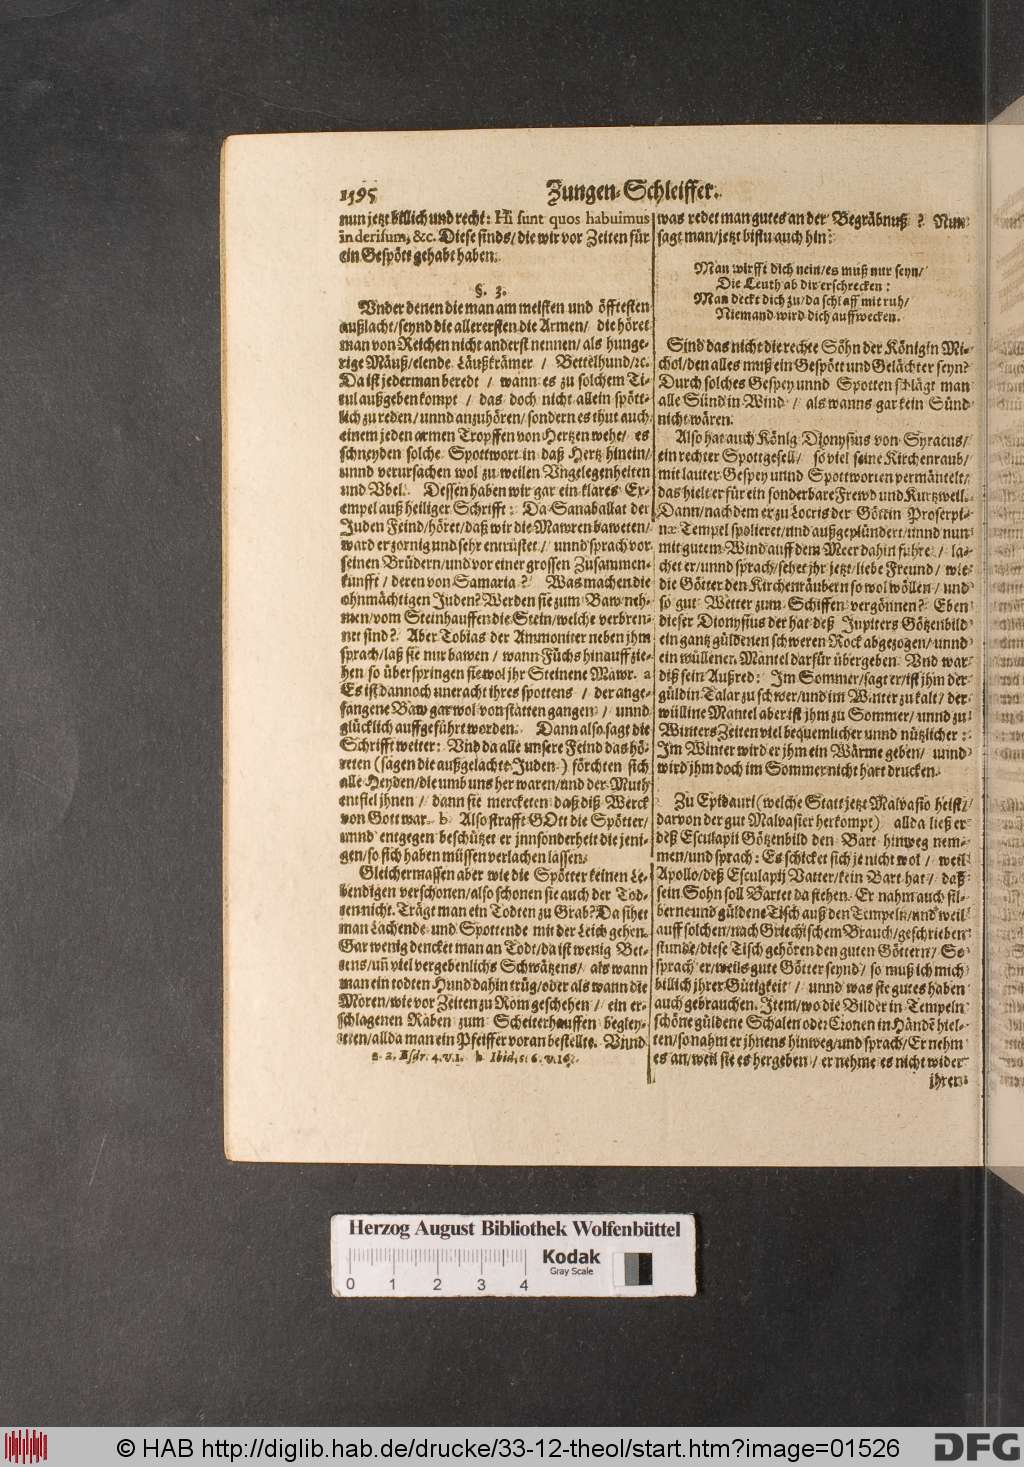 1595
Zungen-Schleiffer.
nun jetzt billich und recht: Hi sunt quos habuimus
in derisum, &c. Diese sinds/ die wir vor Zeiten für
ein Gespött gehabt haben.
§. 3.
Vnder denen die man am meisten und öfftesten
außlacht/ seynd die allerersten die Armen/ die höret
man von Reichen nicht anderst nennen/ als hunge-
rige Mäuß/ elende Läußkrämer / Bettelhund/ ꝛc.
Da ist jederman beredt / wann es zu solchem Ti-
tul außgeben kompt / das doch nicht allein spött-
lich zu reden/ unnd anzuhören/ sondern es thut auch
einem jeden armen Tropffen von Hertzen wehe/ es
schneyden solche Spottwort in daß Hertz hinein/
unnd verursachen wol zu weilen Vngelegenheiten
und Vbel. Dessen haben wir gar ein klares Ex-
empel auß heiliger Schrifft: Da Sanaballat der
Juden Feind/ höret/ daß wir die Mawren baweten/
ward er zornig und sehr entrüstet/ unnd sprach vor
seinen Brüdern/ und vor einer grossen Zusammen-
kunfft / deren von Samaria? Was machen die
ohnmächtigen Juden? Werden sie zum Baw neh-
men/ vom Steinhauffen die Stein/ welche verbren-
net sind? Aber Tobias der Ammoniter neben jhm
sprach/ laß sie nur bawen / wann Füchs hinauff zie-
hen so überspringen sie wol jhr Steinene Mawr. a
Es ist dannoch uneracht ihres spottens / der ange-
fangene Baw gar wol von statten gangen / unnd
glücklich auffgeführt worden. Dann also sagt die
Schrifft weiter: Vnd da alle unsere Feind das hö-
reten (sagen die außgelachte Juden) förchten sich
alle Heyden/ die umb uns her waren/ und der Muth
entfiel jhnen / dann sie merckten daß diß Werck
von Gott war. b Also strafft GOtt die Spötter/
unnd entgegen beschützet er jnnsonderheit die jeni-
gen/ so sich haben müssen verlachen lassen.
Gleichermassen aber wie die Spötter keinen Le-
bendigen verschonen/ also schonen sie auch der Tod-
ten nicht. Trägt man ein Todten zu Grab? Da sihet
man Lachende und Spottende mit der Leich gehen.
Gar wenig dencket man an Todt/ da ist wenig Bet-
tens/ uñ viel vergebenlichs Schwätzens/ als wann
man ein todten Hund dahin trüg/ oder als wann die
Moren/ wie vor Zeiten zu Rom geschehen / ein er-
schlagenen Raben zum Scheiterhauffen begley-
teten/ allda man ein Pfeiffer voran bestellte. Vnnd
a. 2. Esdr. 4. v. 1. b Ibid. c. 6. v. 16.
was redet man gutes an der Begräbnuß? Nun
sagt man/ jetzt bistu auch hin:
Man wirfft dich nein/ es muß nur seyn/
Die Leuth ab dir erschrecken:
Man deckt dich zu/ da schlaff mit ruh/
Niemand wird dich auffwecken.
Sind das nicht die rechte Söhn der Königin Mi-
chol/ den alles muß ein Gespött und Gelächter seyn?
Durch solches Gespey unnd Spotten schlägt man
alle Sünd in Wind / als wanns gar kein Sünd
nicht wären.
Also hat auch König Dionysius von Syracus/
ein rechter Spottgesell/ so viel seine Kirchenraub/
mit lauter Gespey unnd Spottworten vermäntelt/
das hielt er für ein sonderbare Frewd und Kurtzweil.
Dann/ nach dem er zu Locris der Göttin Proserpi-
næ Tempel spolieret/ und außgeplündert/ unnd nun
mit gutem Wind auff dem Meer dahin fuhre / la-
chet er/ unnd sprach/ sehet jhr jetzt/ liebe Freund/ wie
die Götter den Kirchenräubern so wol wöllen/ und
so gut Wetter zum Schiffen vergönnen? Eben
dieser Dionysius der hat deß Jupiters Götzenbild
ein gantz güldenen schweren Rock abgezogen/ unnd
ein wüllenen Mantel darfür übergeben. Vnd war
diß sein Außred: Im Sommer/ sagt er/ ist jhm der
güldin Talar zu schwer/ und im Winter zu kalt/ der
wülline Mantel aber ist jhm zu Sommer/ unnd zu
Winters Zeiten viel bequemlicher unnd nützlicher:
Im Winter wird er jhm ein Wärme geben/ unnd
wird jhm doch im Sommer nicht hart drucken.
Zu Epidauri (welche Statt jetzt Malvasio heist/
darvon der gut Malvasier herkompt) allda ließ er
deß Esculapii Götzenbild den Bart hinweg nem-
men/ und sprach: Es schicket sich je nicht wol / weil
Apollo/ deß Esculapij Vatter/ kein Bart hat/ daß
sein Sohn soll Bartet da stehen. Er nahm auch sil-
berne und güldene Tisch auß den Tempeln/ und weil
auff solchen/ nach Griechischem Brauch/ geschrieben
stunde/ diese Tisch gehören den guten Göttern/ So
sprach er/ weils gute Götter seynd/ so muß ich mich
billich jhrer Gütigkeit / unnd was sie gutes haben
auch gebrauchen. Item/ wo die Bilder in Tempeln
schöne güldene Schalen oder Cronen in Händẽ hiel-
ten/ so nahm er jhnens hinweg/ und sprach/ Er nehm
es an/ weil sie es hergeben/ er nehme es nicht wider
jhren
Herzog August Bibliothek Wolfenbüttel
0 1 2 3 4
Kodak
Gray Scale
© HAB http://diglib.hab.de/drucke/33-12-theol/start.htm?image=01526
DFG